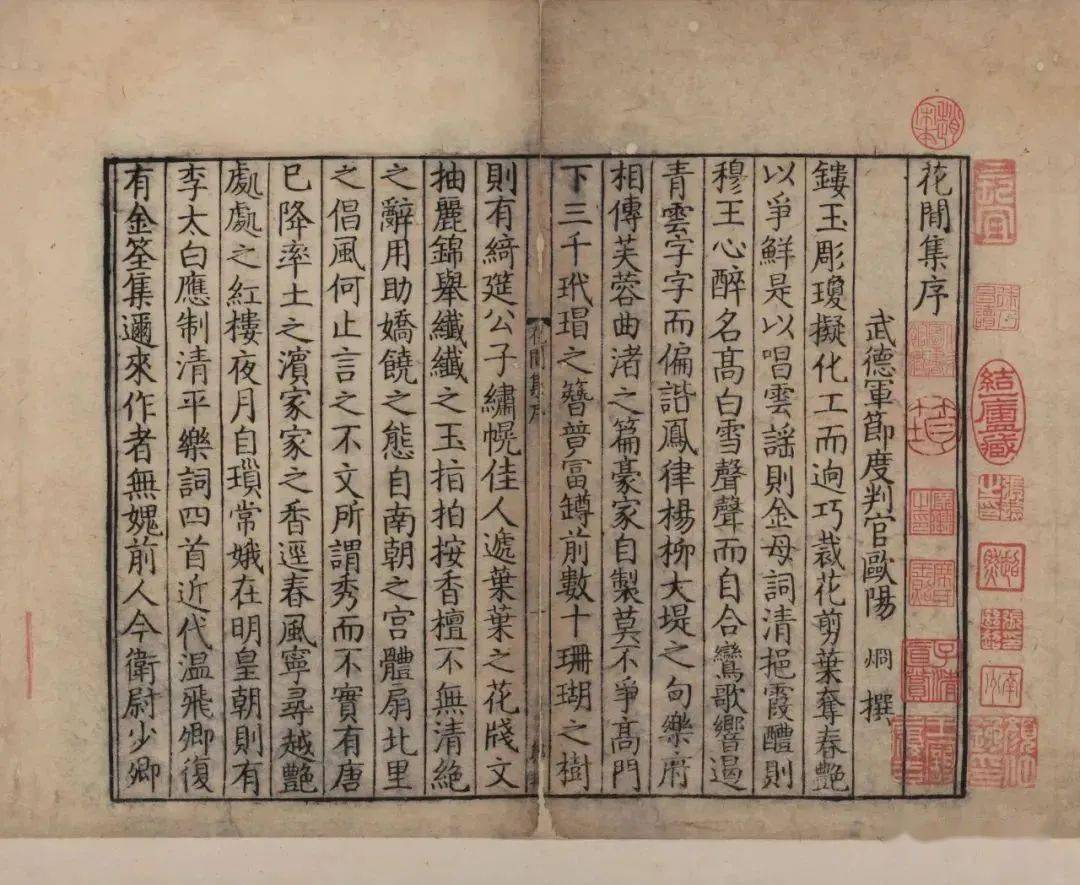 花間集序
武德軍節度判官歐陽 烱 撰
鏤玉彫瓊擬化工而逈巧裁花剪葉奪春艷
以爭鮮是以唱雲謠則金母詞清挹霞醴則
穆王心醉名髙白雪聲聲而自合鸞歌響遏
青雲字字而偏諧鳳律楊柳大堤之句樂府
相傳芙蓉曲渚之篇豪家自製莫不爭髙門
下三千玳瑁之簪競富鐏前數十珊瑚之樹
則有綺筵公子繡幌佳人遞葉葉之花牋文
抽麗錦舉纖纖之玉指拍按香檀不無清絶
之辭用助嬌饒之態自南朝之宮體扇北里
之倡風何止言之不文所謂秀而不實有唐
已降率土之濱家家之香逕春風寧尋越艷
處處之紅樓夜月自瑣常娥在明皇朝則有
李太白應制清平樂詞四首近代温飛卿復
有金筌集邇來作者無媿前人今衛尉少卿
花間集序
結廬藏